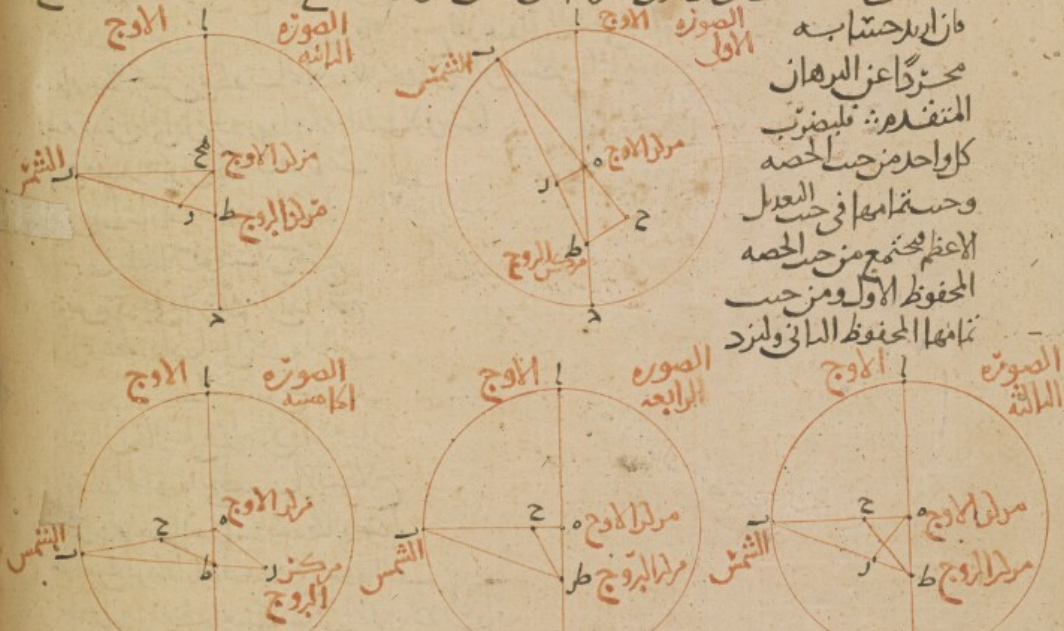 فان اريد حسابه
مجردًا عن البرهان
المتقدم ∴ فليضرب
كل واحد من جيب الحصه
وجيب تمامها في جيب التعديل
الاعظم فيجتمع من جيب الحصه
المحفوظ الاول ومن جيب
تمامها المحفوظ الثاني وليزد
الصورة الاولى
الاوج
ا
ب
الشمس
ه
مركز الاوج
ر
ح
ط
مركز البروج
د
الصورة الثانيه
الاوج
ا
ب
الشمس
هح
مركز الاوج
ر
ط
مركز البروج
د
الصورة الثالثة
الاوج
ا
ب
الشمس
ح
ه
مركز الاوج
ر
ط
مركز البروج
الصورة الرابعة
الاوج
ا
ب
الشمس
ح
ه
مركز الاوج
ط
مركز البروج
الصورة الخامسه
الاوج
ا
ب
الشمس
ح
ه
مركز الاوج
ط
ر
مركز البروج